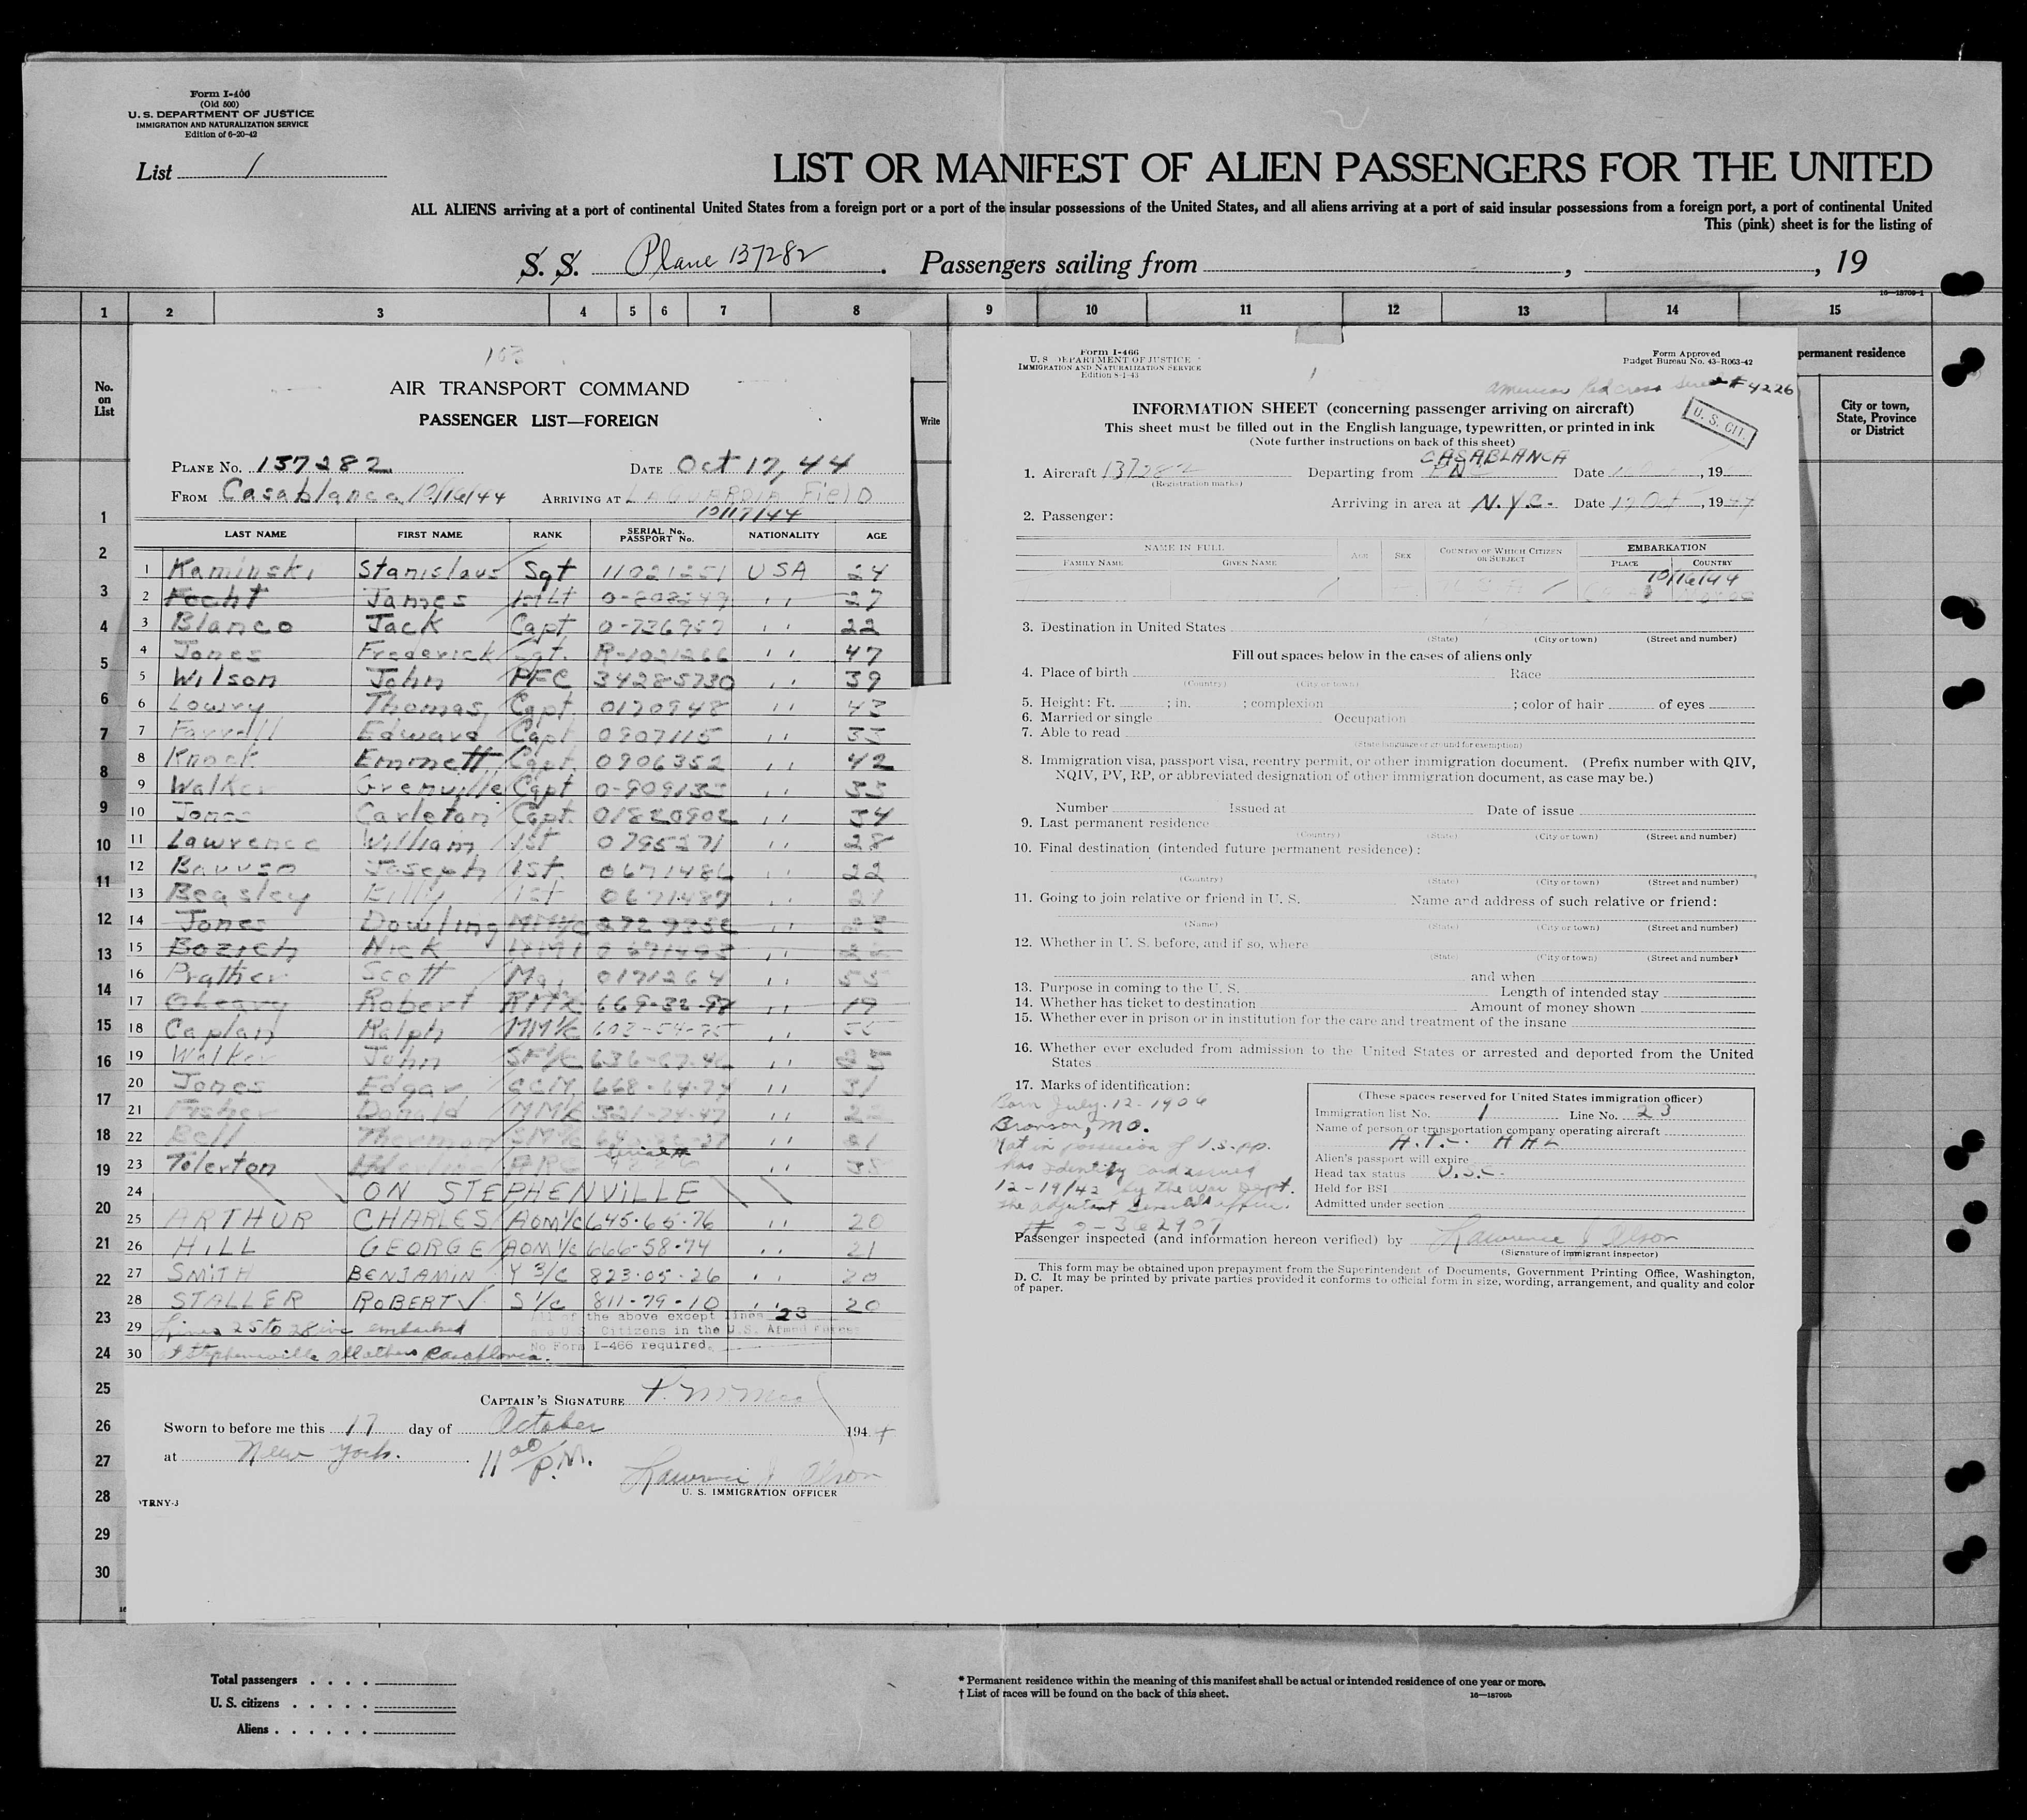 Form I-400
(Old 500)
U. S. DEPARTMENT OF JUSTICE
IMMIGRATION AND NATURALIZATION SERVICE
Edition of 6-20-42
List 1
LIST OR MANIFEST OF ALIEN PASSENGERS FOR THE UNITED
ALL ALIENS arriving at a port of continental United States from a foreign port or a port of the insular possessions of the United States, and all aliens arriving at a port of said insular possessions from a foreign port, a port of continental United
This (pink) sheet is for the listing of
S. S. Plane 137282. Passengers sailing from , , 19
16—18709-1
1 2 3 4 5 6 7 8 9 10 11 12 13 14 15
No. on List
Write
permanent residence
City or town, State, Province or District
AIR TRANSPORT COMMAND
PASSENGER LIST—FOREIGN
PLANE NO. 137282 DATE Oct 17, 44
FROM Casablanca 10/16/44 ARRIVING AT LAGUARDIA FIELD
10/17/44
LAST NAME FIRST NAME RANK SERIAL NO. PASSPORT NO. NATIONALITY AGE
1 Kaminski Stanislaus Sgt 11021251 USA 24
2 Fecht James 1st Lt 27
3 Blanco Jack Capt 0-736957 ,, 22
4 Jones Frederick Sgt. R-1021266 ,, 47
5 Wilson John PFC 34285730 ,, 39
6 Lowry Thomas Capt. 0170948 ,, 43
7 Farrell Edward Capt 0907115 ,, 35
8 Knock Emmett Capt. 0906352 ,, 42
9 Walker Grenville Capt 0-909135 ,, 35
10 Jones Carleton Capt. 01820902 ,, 34
11 Lawrence William 1st 0795271 ,, 28
12 Joseph 1st. 0671486 ,, 22
13 Beasley Billy 1st 0671487 ,,
14 Jones Dowling MM1/c ,, 23
15 Bozich Nick 0671493 ,, 22
16 Prather Scott Maj 0171264 ,, 55
17 OLeary Robert 669-32-97 ,, 19
18 Caplan Ralph MM1/c 603-54-75 ,,
19 Walker John SF1/c 636-67-46 ,, 25
20 Jones Edgar CCM 668-64-74 ,, 31
21 Fisher Donald 321-74-47 ,, 22
22 Bell Thurman ,, 21
23 Tolerton ARC Serial # ,, 38
24 ON STEPHENVILLE
25 ARTHUR CHARLES AOM1/c 645-65-76 ,, 20
26 HILL GEORGE AOM1/c 666-58-74 ,, 21
27 SMITH BENJAMIN Y 3/C 823-05-26 ,, 20
28 STALLER ROBERT S 1/c 811-79-10 ,, 20
All of the above except lines 23
29 Lines 25 to 28 inc embarked
are U.S. Citizens in the U.S. Armed Forces
30 at Stephenville All others Casablanca.
No Form I-466 required.
CAPTAIN'S SIGNATURE
Sworn to before me this 17 day of October 1944
at New York.
11 00 P.M.
Lawrence J Olson
U. S. IMMIGRATION OFFICER
TRNY-3
Form I-466
U. S. DEPARTMENT OF JUSTICE
IMMIGRATION AND NATURALIZATION SERVICE
Edition 8-1-43
Form Approved
Budget Bureau No. 43-R063-42
American Red Cross Serial # 4226
U. S. CIT.
INFORMATION SHEET (concerning passenger arriving on aircraft)
This sheet must be filled out in the English language, typewritten, or printed in ink
(Note further instructions on back of this sheet)
CASABLANCA
1. Aircraft 137282 Departing from Date , 19
(Registration marks)
Arriving in area at N.Y.C. Date 17 Oct, 1944
2. Passenger:
NAME IN FULL AGE SEX COUNTRY OF WHICH CITIZEN OR SUBJECT EMBARKATION
FAMILY NAME GIVEN NAME PLACE COUNTRY
10/16/44
3. Destination in United States
(State) (City or town) (Street and number)
Fill out spaces below in the cases of aliens only
4. Place of birth Race
(Country) (City or town)
5. Height: Ft. ; in. ; complexion ; color of hair of eyes
6. Married or single Occupation
7. Able to read
(State language or ground for exemption)
8. Immigration visa, passport visa, reentry permit, or other immigration document. (Prefix number with QIV,
NQIV, PV, RP, or abbreviated designation of other immigration document, as case may be.)
Number Issued at Date of issue
9. Last permanent residence
(Country) (State) (City or town) (Street and number)
10. Final destination (intended future permanent residence):
(Country) (State) (City or town) (Street and number)
11. Going to join relative or friend in U. S. Name and address of such relative or friend:
(Name) (State) (City or town) (Street and number)
12. Whether in U. S. before, and if so, where
(State) (City or town) (Street and number)
and when
13. Purpose in coming to the U. S. Length of intended stay
14. Whether has ticket to destination Amount of money shown
15. Whether ever in prison or in institution for the care and treatment of the insane
16. Whether ever excluded from admission to the United States or arrested and deported from the United
States
17. Marks of identification:
Born July-12-1906
Bronson, MO.
Not in possession of U.S. pp.
has identity card issued
12-19/42 by the War Dept.
the adjutant Generals office.
(These spaces reserved for United States immigration officer)
Immigration list No. 1 Line No. 23
Name of person or transportation company operating aircraft
A.T.C. HAL
Alien's passport will expire
Head tax status U.S.C.
Held for BSI
Admitted under section
Passenger inspected (and information hereon verified) by Lawrence J Olson
(Signature of immigrant inspector)
This form may be obtained upon prepayment from the Superintendent of Documents, Government Printing Office, Washington,
D. C. It may be printed by private parties provided it conforms to official form in size, wording, arrangement, and quality and color
of paper.
1
2
3
4
5
6
7
8
9
10
11
12
13
14
15
16
17
18
19
20
21
22
23
24
25
26
27
28
29
30
Total passengers . . . .
U. S. citizens . . . . .
Aliens . . . . . .
* Permanent residence within the meaning of this manifest shall be actual or intended residence of one year or more.
† List of races will be found on the back of this sheet.
16—18709b